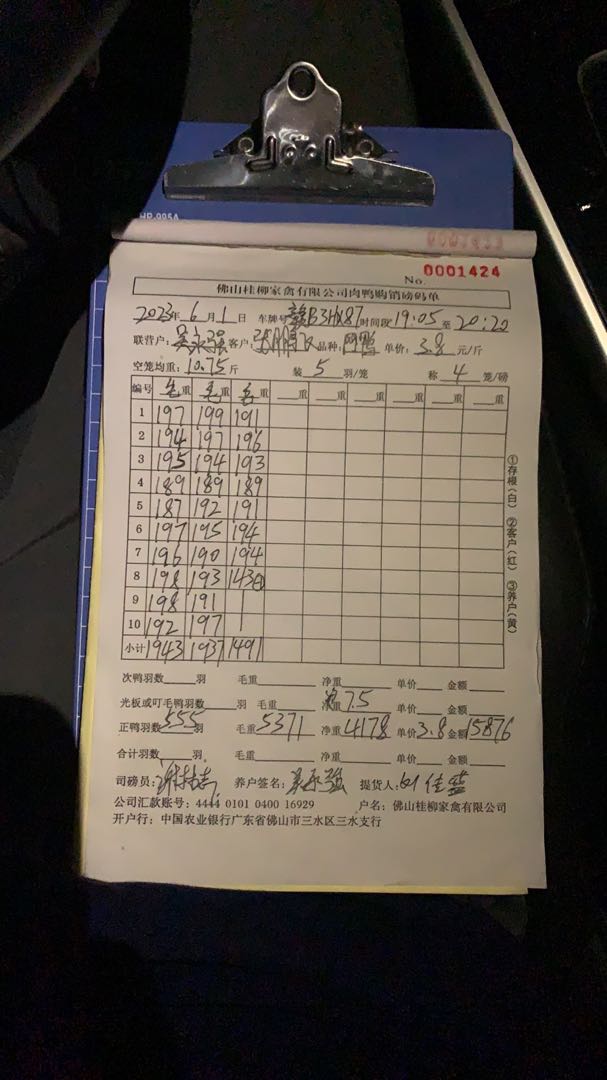 HP-995A
No. 0001424
佛山桂柳家禽有限公司肉鸭购销磅码单
2023年6月1日 车牌号 赣B3HX87 时间段 19:05 至 20:20
联营户: 吴永强 客户: 鹏飞 品种: 鸭 单价: 3.8 元/斤
空笼均重: 10.75 斤 装 5 羽/笼 称 4 笼/磅
编号 毛重 毛重 毛重 重 重 重 重 重
1 197 199 191
2 194 197 196
3 195 194 193
4 189 189 189
5 187 192 191
6 197 195 194
7 196 190 194
8 198 193 143
9 198 191
10 192 197
小计 1943 1937 1491
①存根(白) ②客户(红) ③养户(黄)
次鸭羽数 羽 毛重 净重 单价 金额
光板或叮毛鸭羽数 羽 毛重 净重 7.5 单价 金额
正鸭羽数 555 羽 毛重 5371 净重 4178 单价 3.8 金额 15876
合计羽数 羽 毛重 净重 单价 金额
司磅员: 养户签名: 吴永强 提货人:
公司汇款账号: 4444 0101 0400 16929 户名: 佛山桂柳家禽有限公司
开户行: 中国农业银行广东省佛山市三水区三水支行